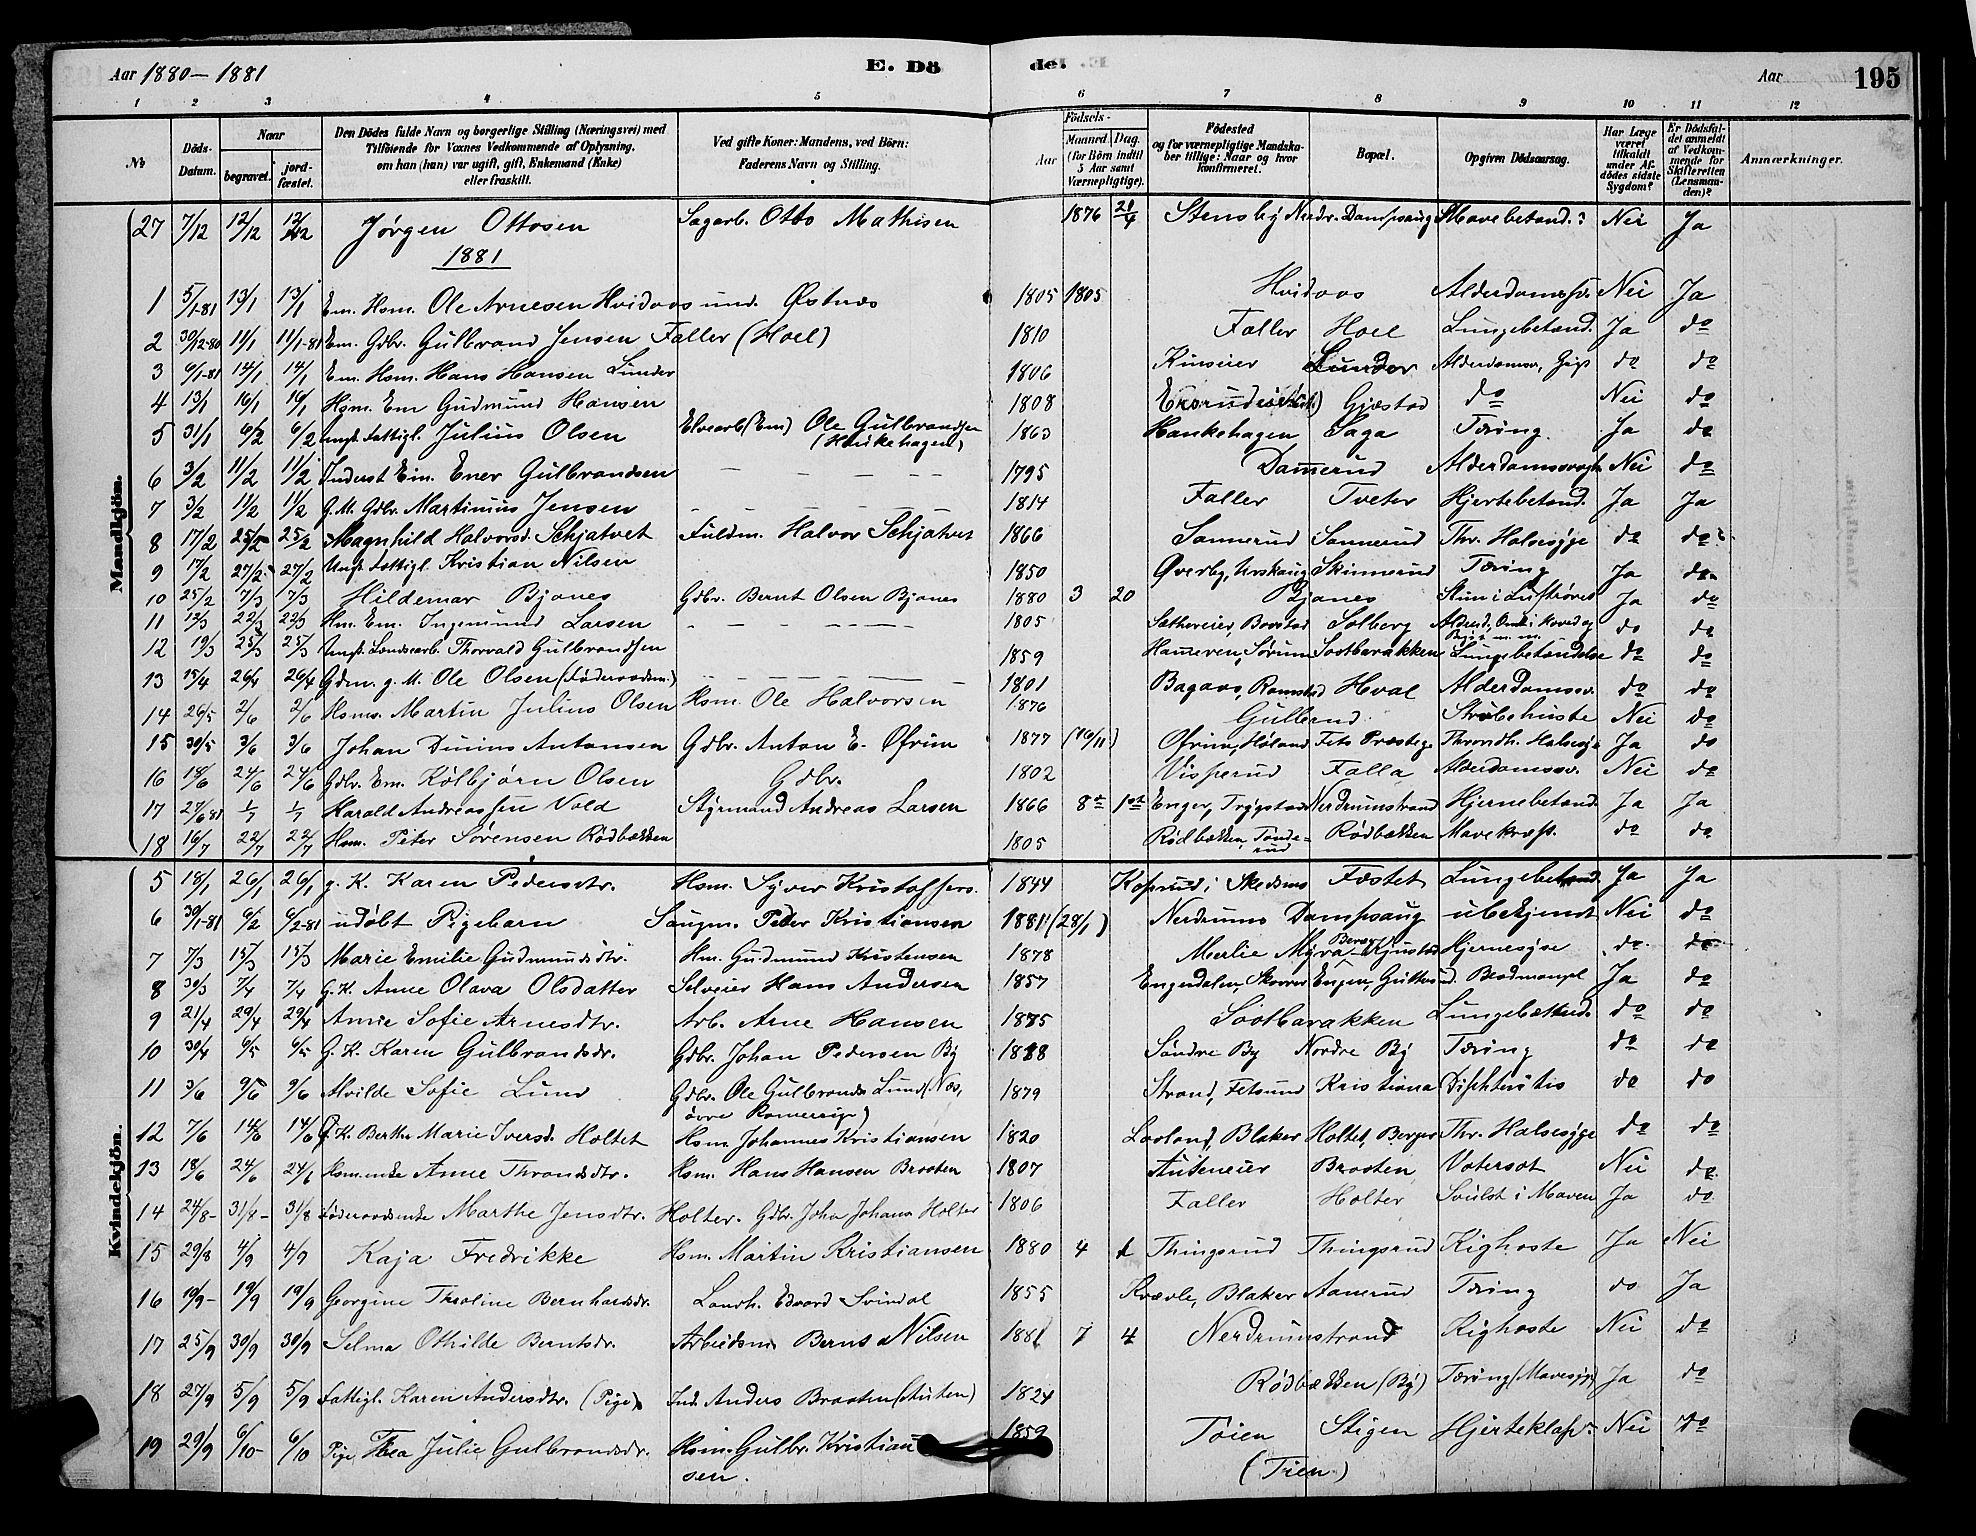 Aar 1880-1881 E. Dö de. Aar 195
1 2 3 4 5 6 7 8 9 10 11 12
No Döds-Datum. Naar begravet. jord-fæstet. Den Dödes fulde Navn og borgerlige Stilling (Næringsvei) med Tilföiende for Voxnes Vedkommende af Oplysning, om han (han) var ugift, gift, Enkemand (Enke) eller fraskilt. Ved gifte Koner: Mandens, ved Börn: Faderens Navn og Stilling. Födsels- Aar Maaned. Dag. (for Börn indtil 5 Aar samt Værnepligtige). Födested og for værnepligtige Mandskaber tillige: Naar og hvor konfirmeret. Bopæl. Opgiven Dödsaarsag. Har Læge været tilkaldt under Afdödes sidste Sygdom? Er Dödsfaldet anmeldt af Vedkommende for Skifteretten (Lensmanden)? Anmærkninger.
Mandkjön.
27 7/12 12/12 12/12 Jørgen Ottosen Sagarb. Otto Mathisen 1876 21/4 Stensby Nerdr. Dampsaug Mavebetænd. Nei Ja
1881
1 5/1-81 13/1 13/1 Em. Hsm. Ole Arnesen Hvidaas und. Østnæs 1805 1805 Hvidaas Alderdomssv. Nei Ja
2 30/12-80 11/1 11/1-81 Em. Gdbr. Gulbrand Jensen Faller (Hoel) 1810 Faller Hoel Lungebetænd. Ja do
3 6/1-81 14/1 14/1 Em. Hsm. Hans Hansen Lunder 1806 Lunder Alderdomssv, Gigt do do
4 13/1 16/1 16/1 Hsm. Em Gudmund Hansen 1808 Gjæstad do Nei do
5 31/1 6/2 6/2 Ungk. Fattigl. Julius Olsen Elvearb (Em) Ole Gulbrandsen 1863 Hankehagen Saga Tæring. Ja do
(Hankehagen)
6 3/2 11/2 11/2 Inderst Em. Ener Gulbrandsen 1795 Damerud Nei do
7 3/2 11/2 11/2 G. M. Gdbr. Martinius Jensen 1814 Faller Tveter Hjertebetænd. Ja Ja
8 17/2 25/2 25/2 Magnhild Halvorsd. Schjatvet Fuldm. Halvor Schjatvet 1866 Sannerud Sannerud Thr. Halsesyge do do
9 17/2 27/2 27/2 Ungk. Fattigl. Kristian Nilsen 1850 Øverby, Urskaug Skinnerud Tæring Ja do
10 25/2 7/3 7/3 Hildemar Bjanes Gdbr. Bernt Olsen Bjanes 1880 3 20 Bjanes Ja do
11 12/3 22/3 22/3 Hm. Em. Ingemund Larsen 1805 Solberg do do
12 19/3 25/3 25/3 Ungk. Landsarb. Thorvald Gulbrandsen 1859 Sørum Sootbarakken Lungebetændelse do do
13 15/4 26/4 26/4 Gdm. g. M. Ole Olsen (Föderaadsm.) 1801 Bagaas, Ramstad Hval Alderdomssv. do do
14 26/5 2/6 2/6 Hsms. Martin Julius Olsen Hsm. Ole Halvorsen 1876 Gullerud Strubehoste Nei do
15 30/5 3/6 3/6 Johan Antonsen Gdbr. Anton E. Øfrim 1877 (16/11) Øfrim, Høland Fets Præsteg. Throndh. Halsesyge Ja do
16 18/6 24/6 24/6 Gdbr. Em. Kolbjørn Olsen Gdbr. 1802 Visperud Falla Alderdomssv. Nei do
17 27/6 81 1/7 1/7 Harald Andreassen Vold Styrmand Andreas Larsen 1866 8de 1ste Enger, Trygstad Nerdrumstrand Hjernebetænd. Ja Ja
18 16/7 22/7 22/7 Hsm. Peter Sørensen Rødbækken 1805 Rødbækken, Tande-rud Rødbækken Mavekræft. do do
Kvindekjön.
5 18/1 26/1 26/1 g. K. Karen Pedersdtr. Hsm. Syver Kristoffers. 1844 Koprud i Skedsmo Fæstet Lungebetænd. Ja Ja
6 30/1-81 6/2 6/2-81 udöbt Pigebarn Saugm. Peder Kristiansen 1881 (28/1) Nerdrums Dampsaug ubekjendt Nei do
7 7/3 13/3 13/3 Marie Emilie Gudmundsdtr. Hm. Gudmund Kristensen 1878 Merlie Myra Hjernesyge do do
8 30/3 7/4 7/4 g. K. Anne Olava Olsdatter Selveier Hans Andersen 1857 Engerdalen, Enger, Gullerud Blodmangel Ja do
9 21/4 29/4 29/4 Anne Sofie Arnesdtr. Arb. Arne Hansen 1875 Sootbarakken Lungebetænd. do do
10 30/4 6/5 6/5 G. K. Karen Gulbrandsdr. Gdbr. Johan Pedersen By 1818 Søndre By Nordre By Tæring do do
11 3/6 9/6 9/6 Alvilde Sofie Lund Gdbr. Ole Gulbrands. Lund (Næs, 1879 Strand, Fetsund Kristiania Diphteritis do do
øvre Romerrige)
12 7/6 14/6 14/6 G. K. Berthe Marie Iversd. Holtet Hsm Johannes Kristiansen 1820 Blaker Holtet, Berger Thr. Halsesyge do do
13 18/6 24/6 24/6 Hsm.enke Anne Throndsdtr. Hsm. Hans Hansen Braaten 1807 Braaten Vatersot Nei do
14 24/8 31/8 31/8 Föderaadsenke Marthe Jensdtr. Holter. Gdbr. Johs Johans Holter 1806 Faller Holter Svulst i Maven Ja do
15 29/8 4/9 4/9 Kaja Fredrikke Hsm. Martin Kristiansen 1880 4 Thingsrud Thingsrud Kighoste Ja Nei
16 10/9 19/9 19/9 Georgine Theoline Bernhardsdr. Landh. Edvard Svindal 1855 Krævle, Blaker Aanerud Tæring do Ja
17 25/9 30/9 30/9 Selma Othilde Berntsdr. Arbeidsm Bernt Nilsen 1881 7 4 Nerdrumstrand Kighoste Nei do
18 27/9 5/9 5/9 Fattigl. Karen Andersdtr. (Pige) Ind. Anders Braaten 1824 Rødbækken (By) Tæring (Mavesyge) Ja do
19 29/9 6/10 6/10 Pige Thea Julie Gulbrandsdr. Hsm. Gulbr. Kristian 1859 Töien Stigen Hjerteklap. Nei do
sen. (Tien)